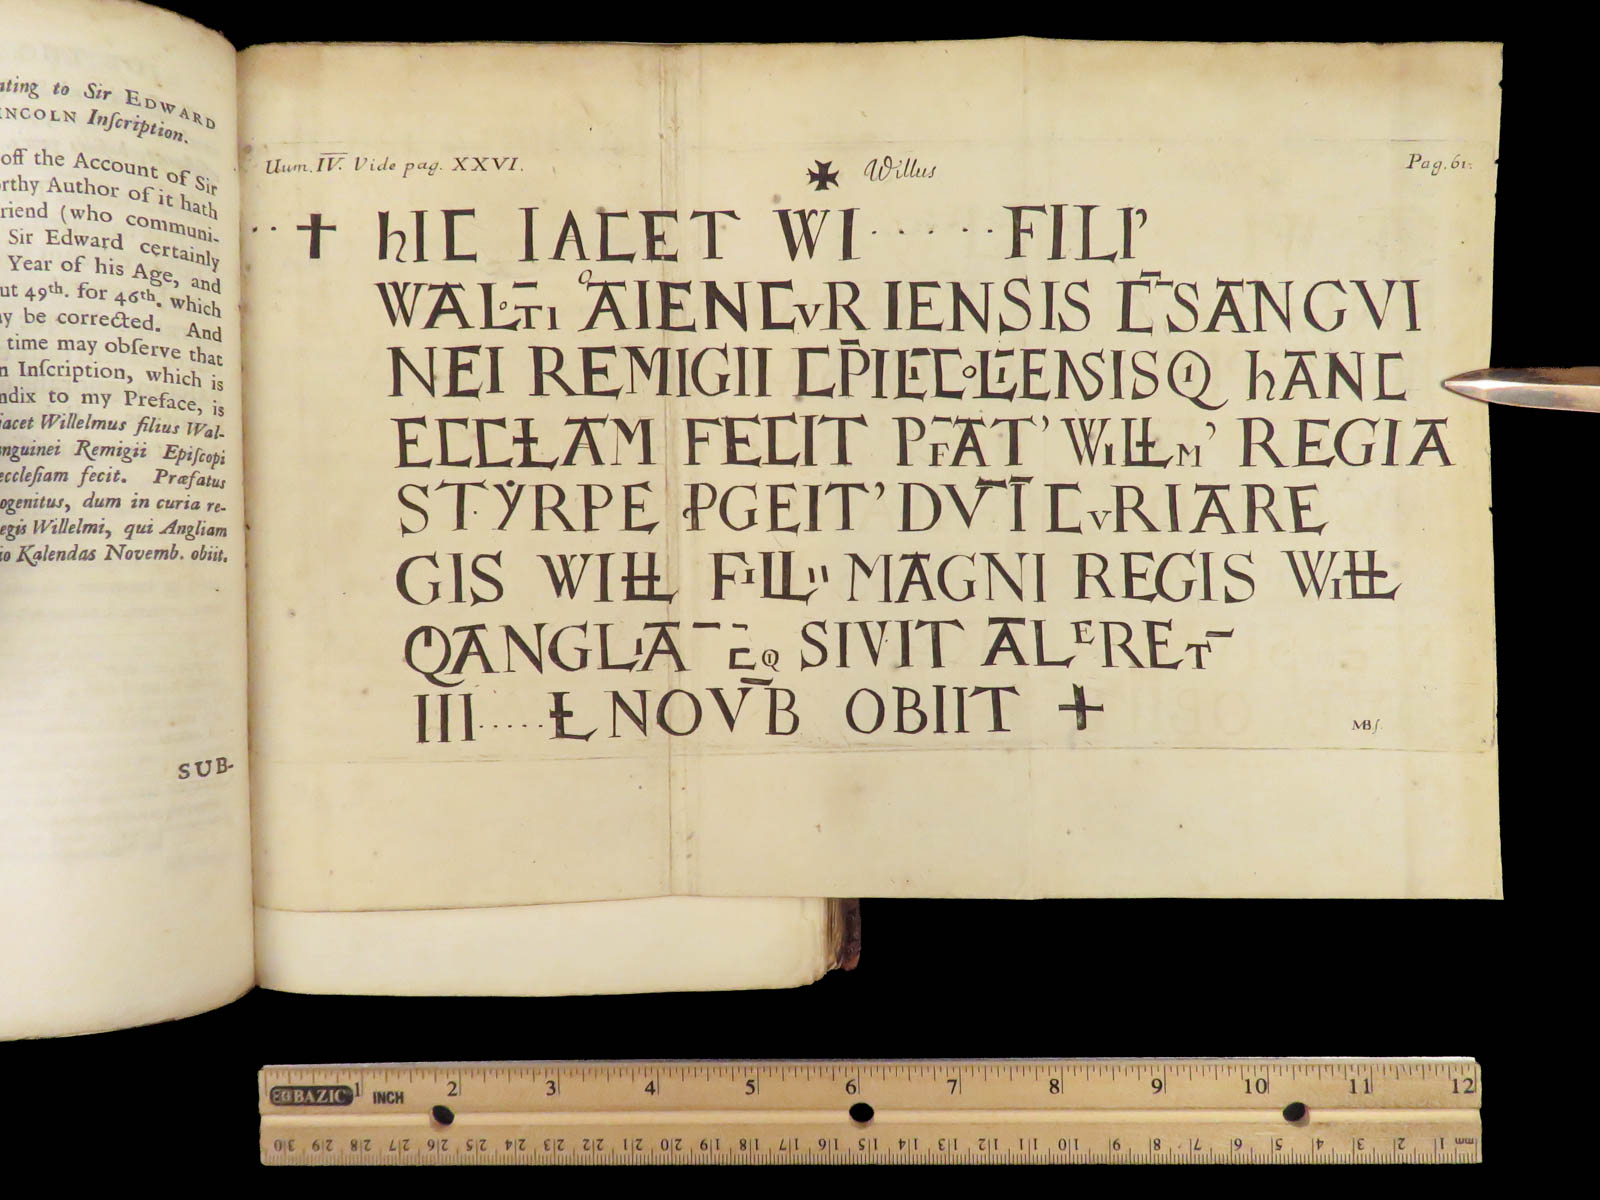 ating to Sir EDWARD
INCOLN Inſcription.
off the Account of Sir
orthy Author of it hath
riend (who communi-
Sir Edward certainly
Year of his Age, and
ut 49th. for 46th. which
ay be corrected. And
time may obſerve that
n Inſcription, which is
ndix to my Preface, is
jacet Willelmus filius Wal-
nguinei Remigii Epiſcopi
eccleſiam fecit. Præfatus
ogenitus, dum in curia re-
egis Willelmi, qui Angliam
io Kalendas Novemb. obiit.
SUB-
Num. IV. Vide pag. XXVI.
✠ Willus
Pag. 61.
·· ✝ hIC IACET WI ······ FILI'
WALOT̄I OAIENCVRIENSIS C̄SANGVI
NEI REMIGII EP̄I LĪCOLĪENSIS QI hANC
ECCŁAM FECIT P̄FAT' WIŁŁM' REGIA
STYRPE PGEIT' DV̄ Ī CVRIA RE
GIS WIŁŁ FILII MAGNI REGIS WIŁŁ
QANGLIĀ C̄Q SIVIT ALERET̄
III ····· Ł NOV̄B OBIIT ✝
MB ſ.
BAZIC INCH
1 2 3 4 5 6 7 8 9 10 11 12
30 29 28 27 26 25 24 23 22 21 20 19 18 17 16 15 14 13 12 11 10 9 8 7 6 5 4 3 2 1 mm